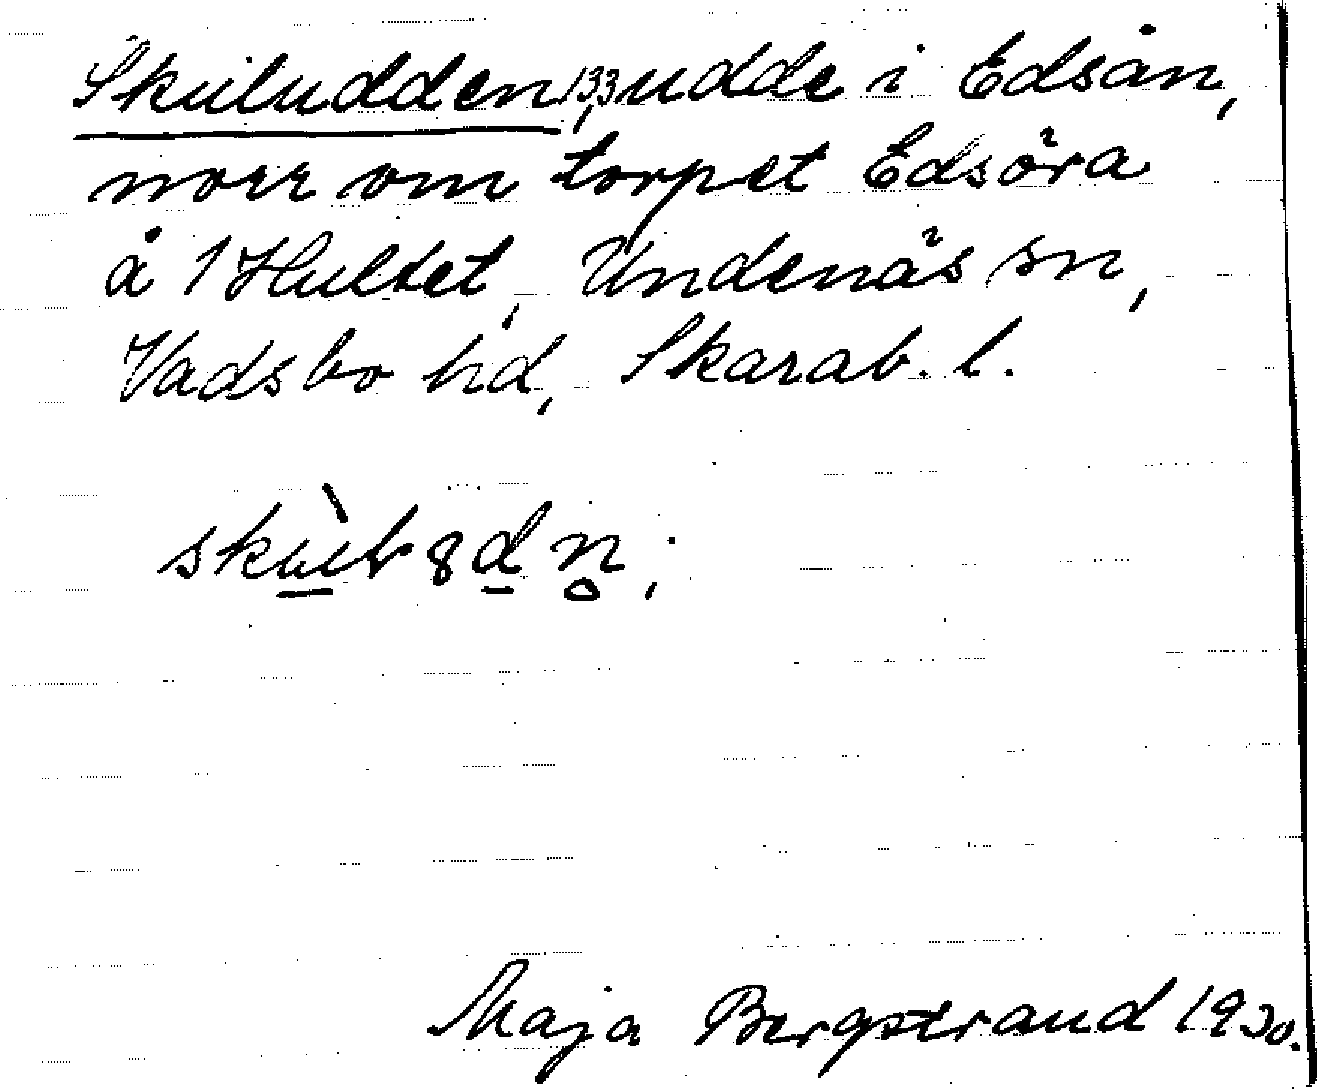 Skuludden, 133, udde i Edsån,
norr om torpet Edsöra
å 1 Hultet, Undenäs sn,
Vadsbo hd, Skarab. l.
Maja Bergstrand 1930.